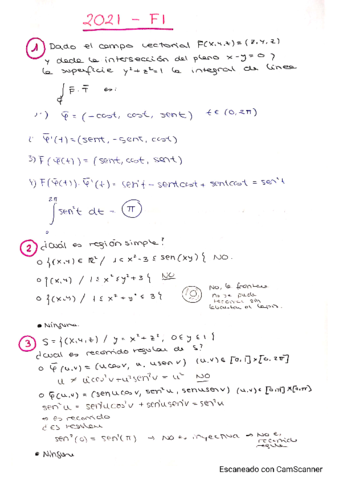 2021 - F1
1 Dado el campo vectorial F(x,y,z)=(z,y,z)
y dada la intersección del plano x-y=0 y
la superficie y²+z²=1 la integral de línea
∫ F̄·T̄
φ̄ = (-cost, cost, sent) t∈(0,2π)
φ̄'(t)=(sent,-sent,cost)
F(φ(t))=(sent,cost,sent)
F(φ(t))·φ̄'(t)= sen²t - sentcost + sintcost = sen²t
∫ sen²t dt = π
2 ¿Cuál es región simple?
NO.
NO
No, la frontera
no se puede
• Ninguna
3 S={(x,y,z) / y=x²+z², 0≤y≤1}
¿Cual es recorrido regular de S?
o φ̄(u,v)=(ucosv, u, usenv) (u,v)∈[0,1]×[0,2π]
u ≠ u²cos²v+u²sen²v = u² NO
o φ̄(u,v)=(senucosv, sen²u, senusenv) (u,v)∈
sen²u = sen²ucos²v + sen²usen²v = sen²u
→ es recorrido
¿es regular
sen²(0) = sen²(π) → No es inyectiva → No es
recorrido
regular
• Ninguna
Escaneado con CamScanner